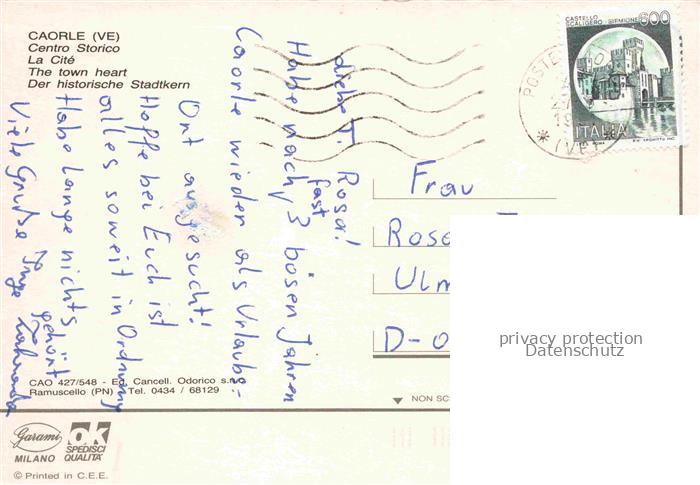 CAORLE (VE)
Centro Storico
La Cité
The town heart
Der historische Stadtkern
CASTELLO
SCALIGERO - SIRMIONE
600
ITALIA
POSTE
(VE)
Liebe T. Rosa!
Habe nach fast 3 bösen Jahren
Caorle wieder als Urlaubs-
Ort ausgesucht!
Hoffe bei Euch ist
alles soweit in Ordnung
Habe lange nichts
gehört
Viele Grüße Inge
Frau
Ulm
D-0
privacy protection
Datenschutz
CAO 427/548 - Ed. Cancell. Odorico s.n.c.
Ramuscello (PN) - Tel. 0434 / 68129
NON SC
Garami
MILANO
ok
SPEDISCI
QUALITÀ
© Printed in C.E.E.